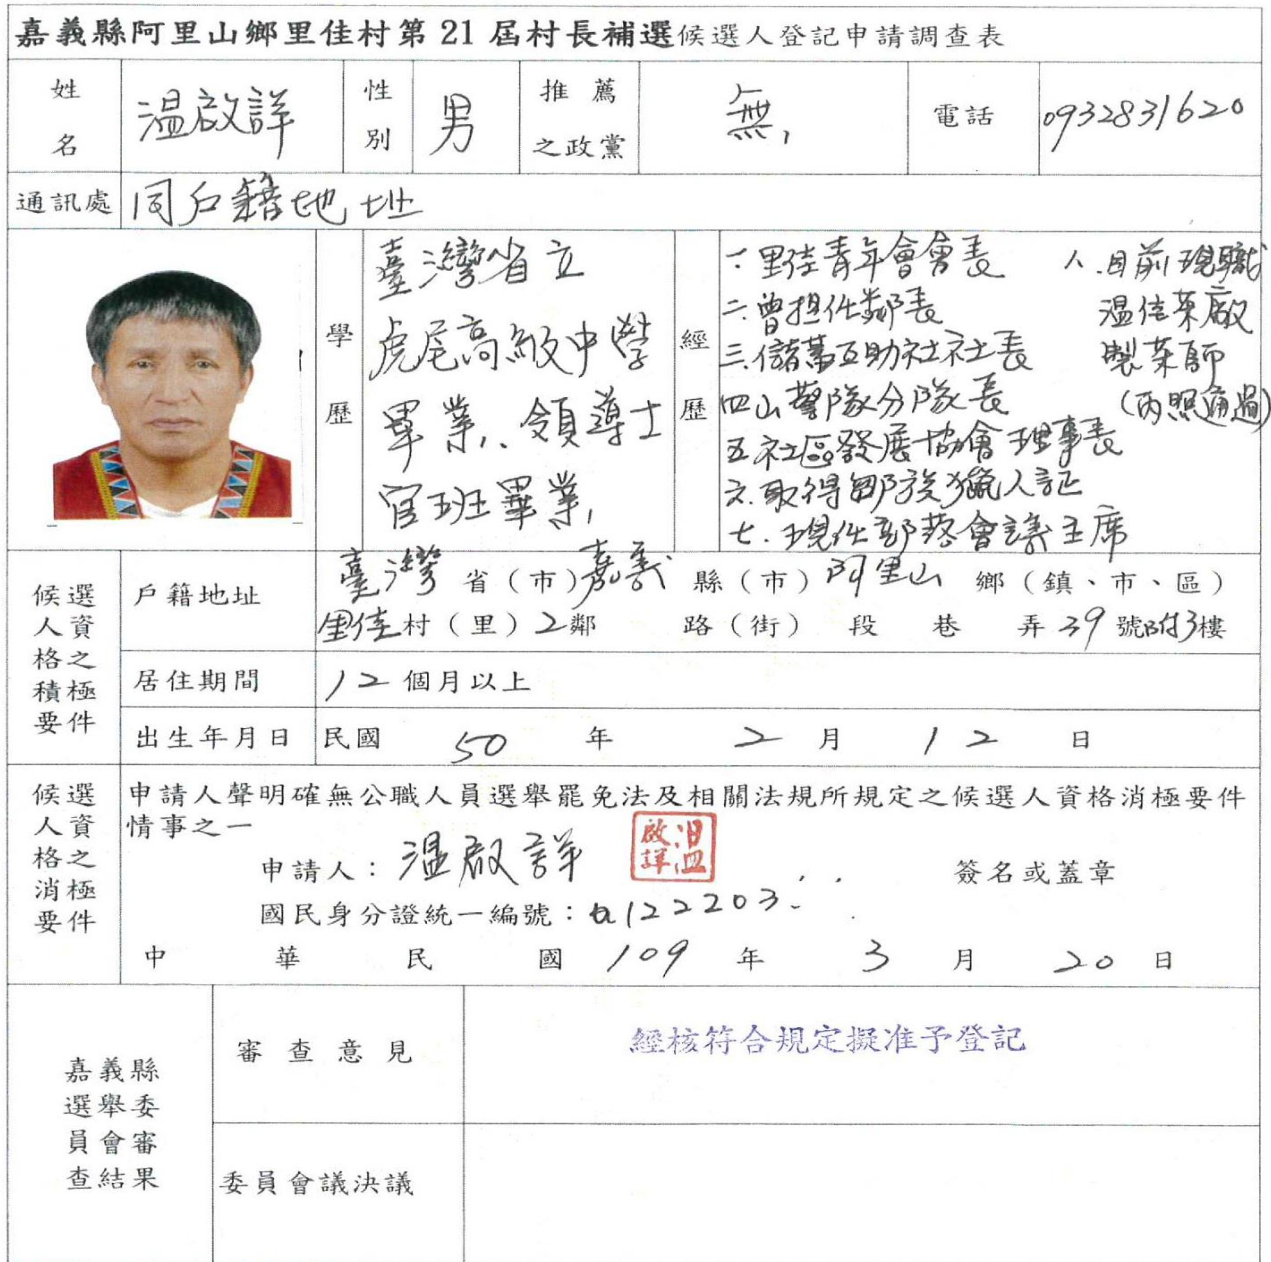 嘉義縣阿里山鄉里佳村第 21 屆村長補選候選人登記申請調查表
姓名 温啟詳 性別 男 推薦之政黨 無, 電話 0932831620
通訊處 同戶籍地址
學歷
臺灣省立
虎尾高級中學
畢業、領導士
官班畢業,
經歷
一. 里佳青年會會長
二. 曾担任鄰長
三. 儲蓄互助社社長
四 山警隊分隊長
五 社區發展協會理事長
六. 取得鄒族獵人証
七. 現任部落會議主席
八. 目前現職
温佳茶廠
製茶師
(丙照通過)
候選人資格之積極要件
戶籍地址 臺灣 省（市）嘉義 縣（市）阿里山 鄉（鎮、市、區）
里佳 村（里）2 鄰 路（街） 段 巷 弄 39 號附3樓
居住期間 12 個月以上
出生年月日 民國 50 年 2 月 12 日
候選人資格之消極要件
申請人聲明確無公職人員選舉罷免法及相關法規所規定之候選人資格消極要件
情事之一
申請人：温啟詳 温啟詳 簽名或蓋章
國民身分證統一編號：122203
中華民國 109 年 3 月 20 日
嘉義縣選舉委員會審查結果
審查意見 經核符合規定擬准予登記
委員會議決議